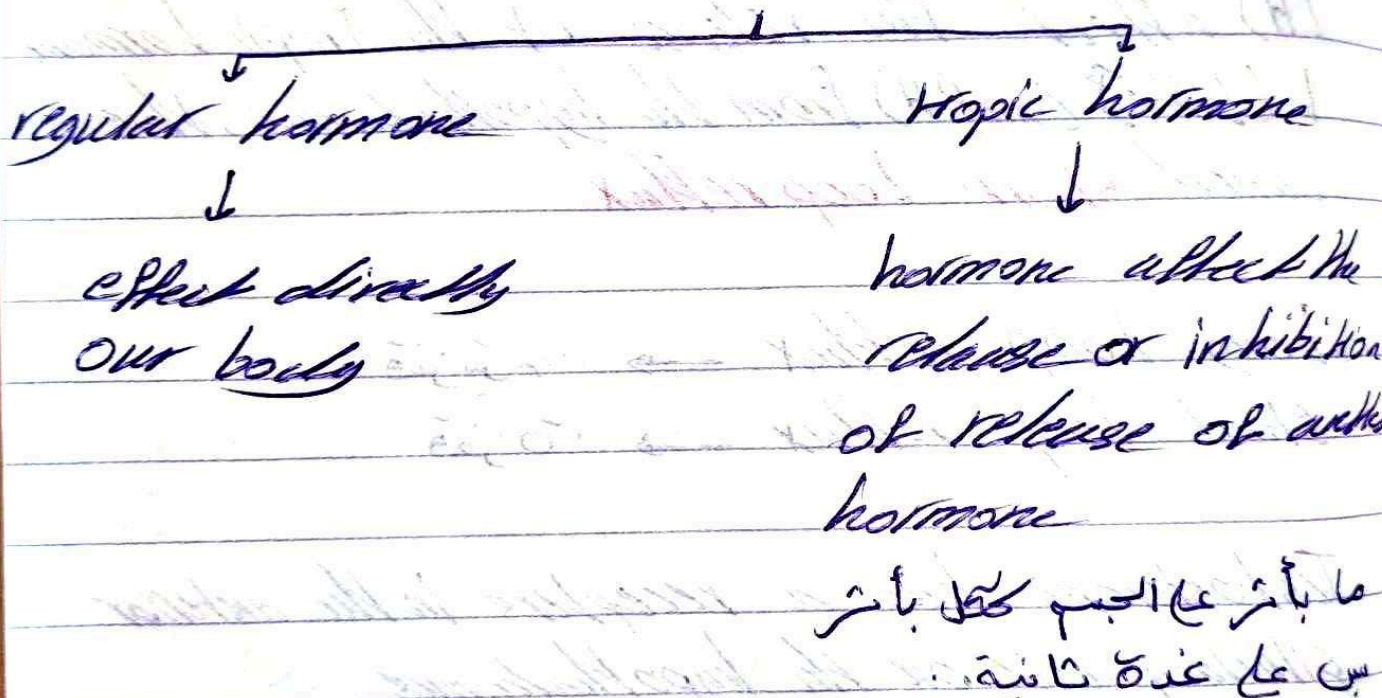 regular hormone
tropic hormone
effect directly
our body
hormone affect the
release or inhibition
of release of another
hormone
ما بأثر على الجسم ككل بأثر
بس على غدة ثانية.